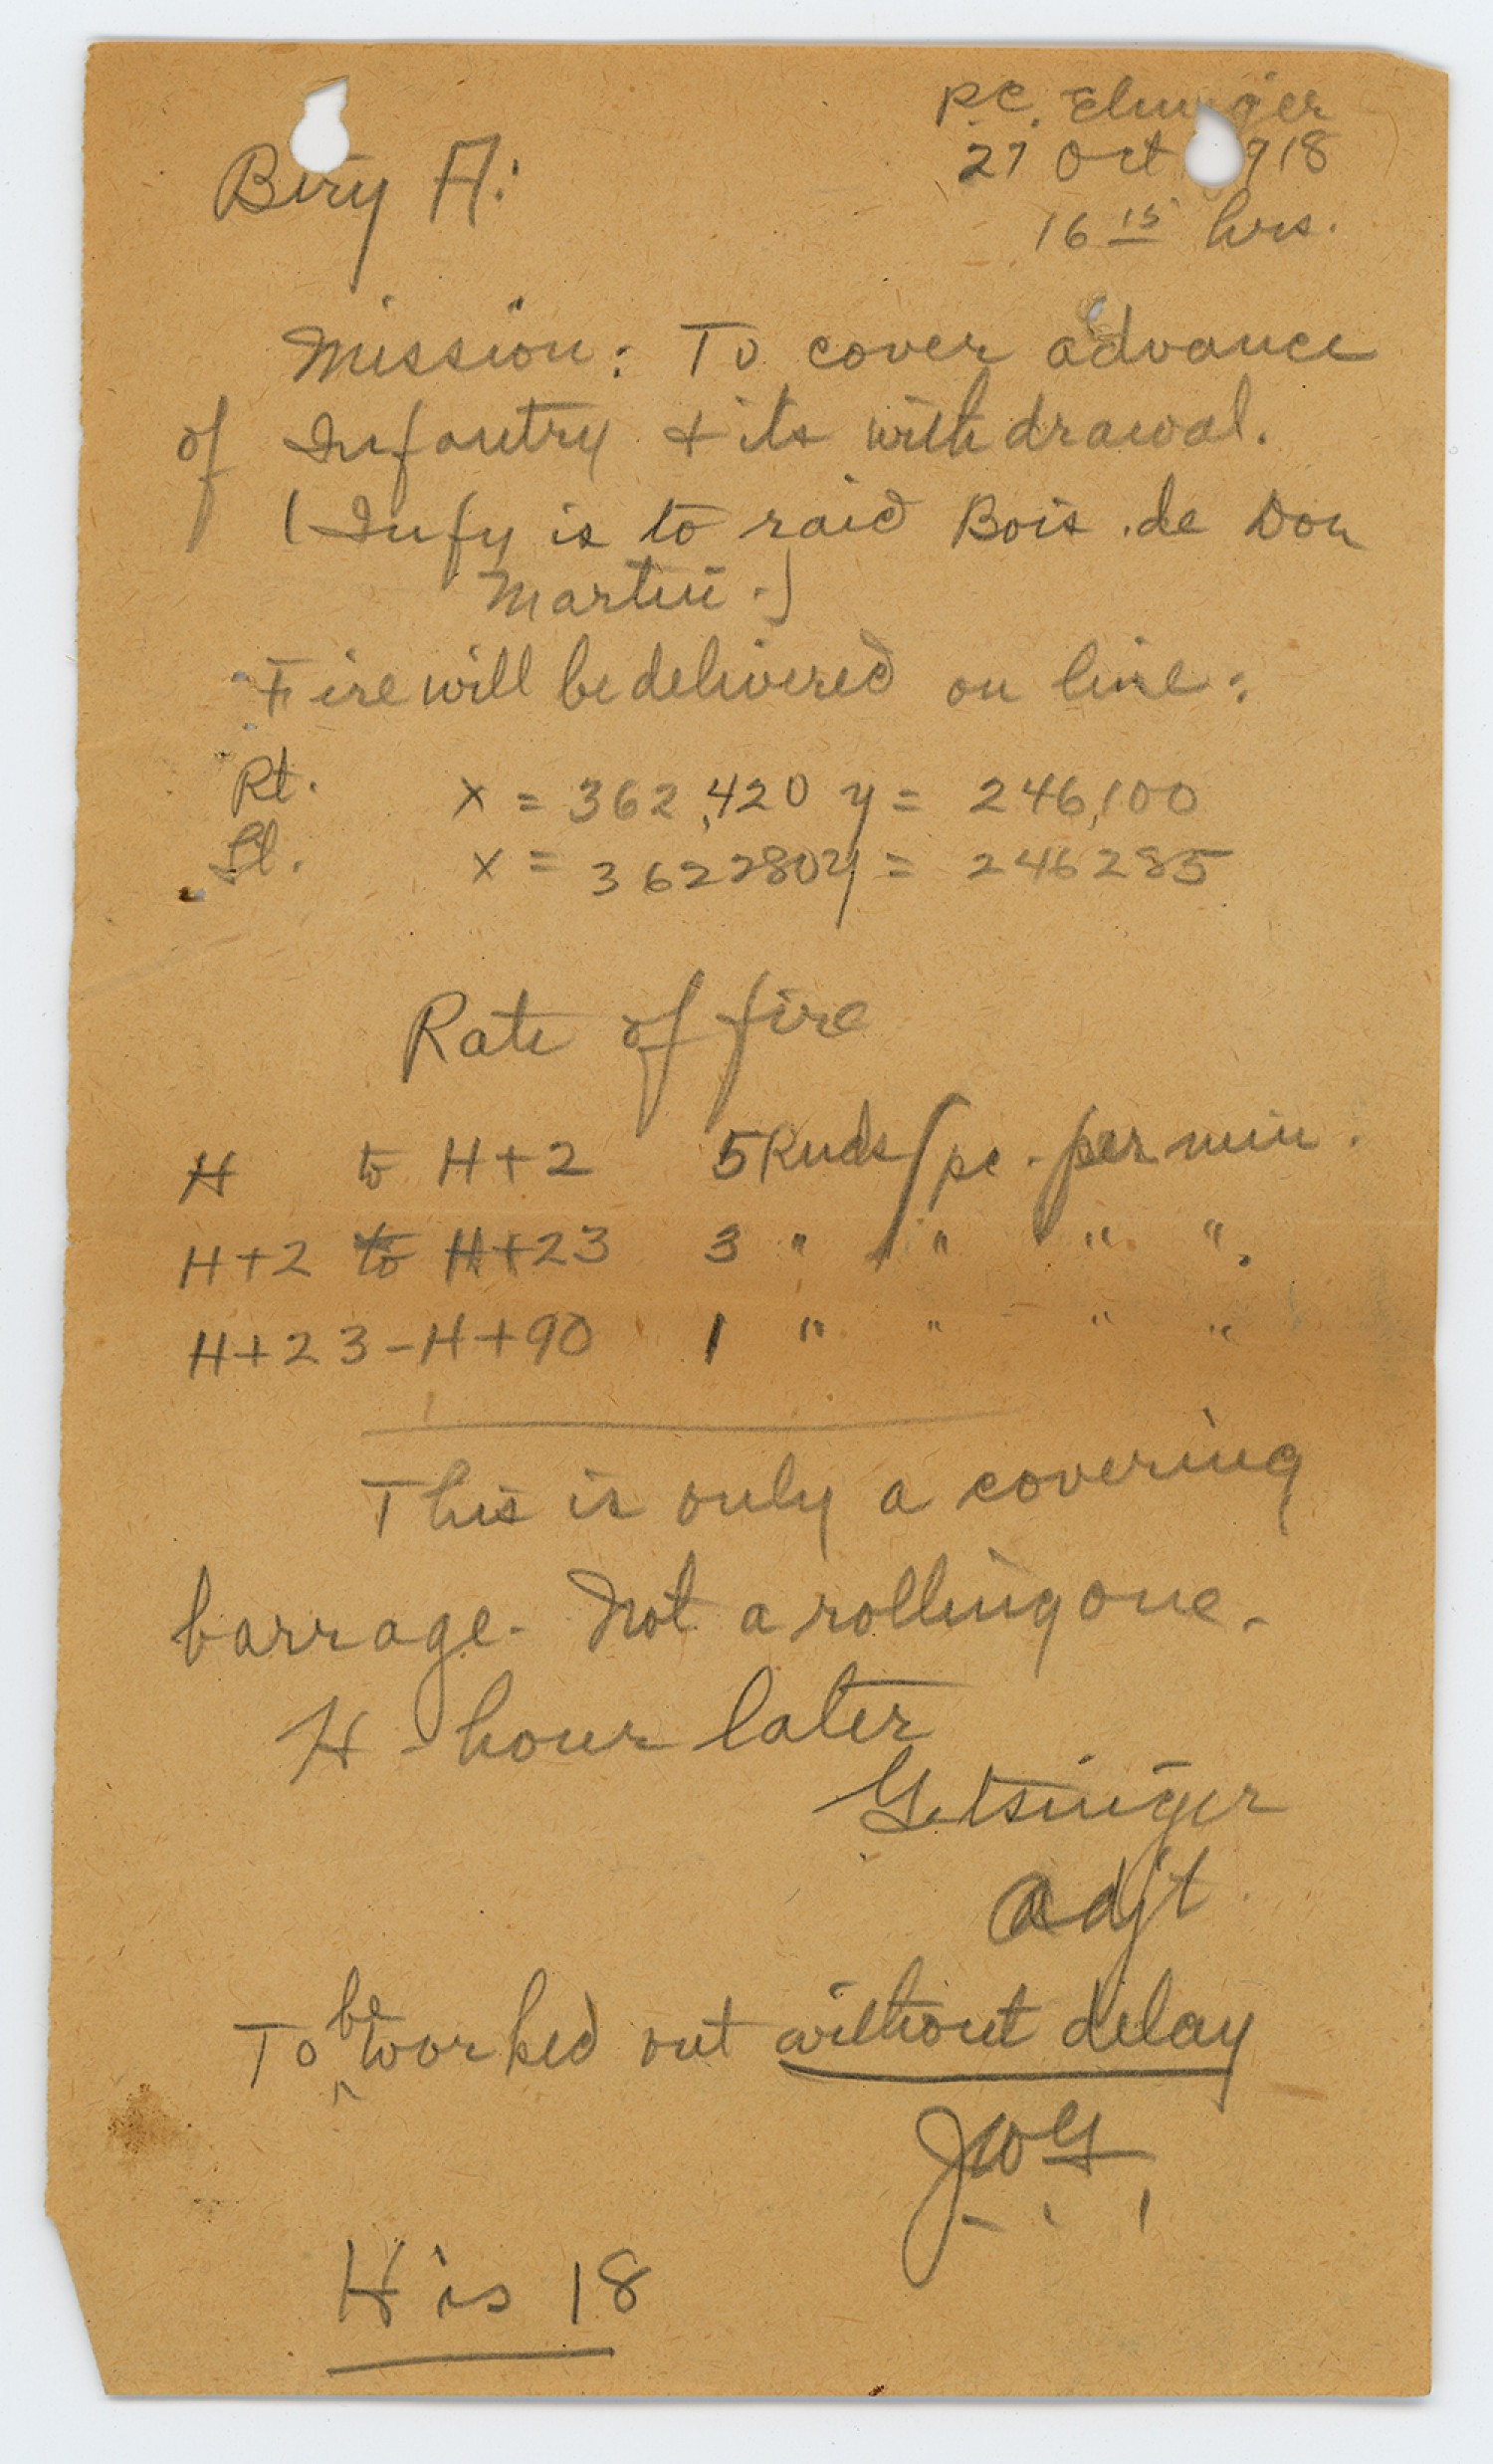 P.C.
27 Oct 1918
Btry A:
16 15 hrs.
Mission: To cover advance
of Infantry + its withdrawal.
(Infy is to raid Bois de Don
Martin.)
Fire will be delivered on line:
Rt. x = 362,420 y = 246,100
Lt. x = 362280 y = 246285
Rate of fire
H to H+2 5 Rnds/pc. per min.
H+2 to H+23 3 " / " " ".
H+23-H+90 1 " " " "
This is only a covering
barrage. Not a rolling one.
H-hour later
Getsinger
Adjt.
To be worked out without delay
JWG
H is 18